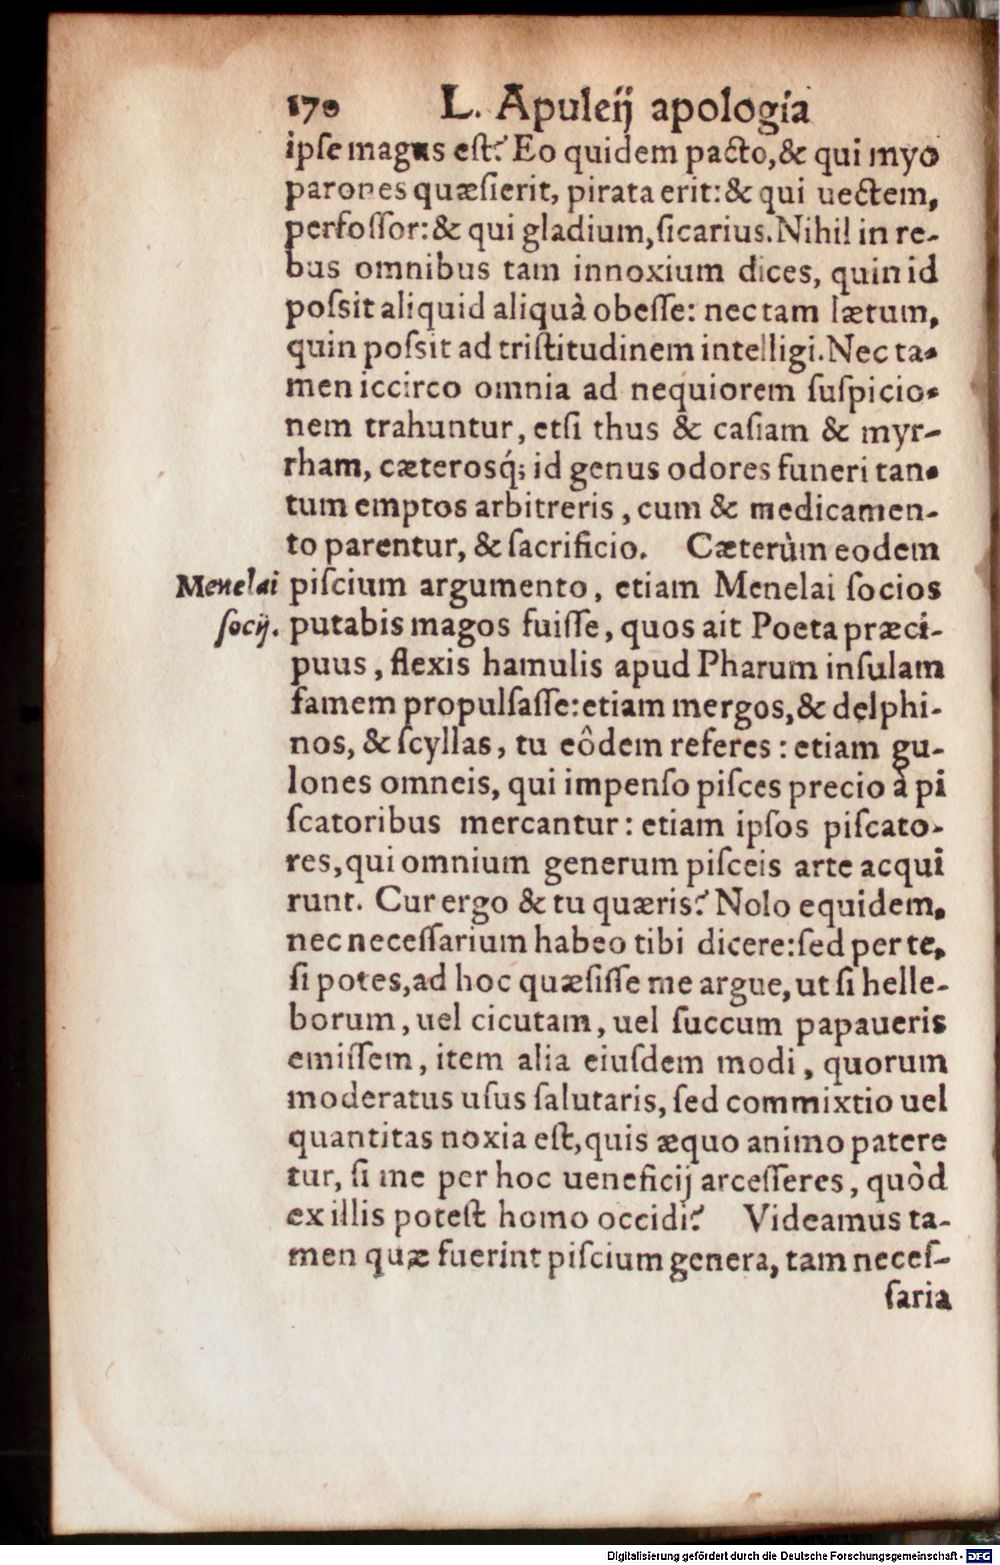 170 L. Apuleij apologia
ipſe magus eſt? Eo quidem pacto, & qui myo
parones quæſierit, pirata erit: & qui uectem,
perfoſſor: & qui gladium, ſicarius. Nihil in re-
bus omnibus tam innoxium dices, quin id
poſsit aliquid aliquà obeſſe: nec tam lætum,
quin poſsit ad triſtitudinem intelligi. Nec ta-
men iccirco omnia ad nequiorem ſuſpicio-
nem trahuntur, etſi thus & caſiam & myr-
rham, cæterosq́; id genus odores funeri tan-
tum emptos arbitreris, cum & medicamen-
to parentur, & ſacrificio. Cæterùm eodem
Menelai piſcium argumento, etiam Menelai ſocios
ſocij. putabis magos fuiſſe, quos ait Poeta præci-
puus, flexis hamulis apud Pharum inſulam
famem propulſaſſe: etiam mergos, & delphi-
nos, & ſcyllas, tu eôdem referes: etiam gu-
lones omneis, qui impenſo piſces precio à pi
ſcatoribus mercantur: etiam ipſos piſcato-
res, qui omnium generum piſceis arte acqui
runt. Cur ergo & tu quæris? Nolo equidem,
nec neceſſarium habeo tibi dicere: ſed per te,
ſi potes, ad hoc quæſiſſe me argue, ut ſi helle-
borum, uel cicutam, uel ſuccum papaueris
emiſſem, item alia eiuſdem modi, quorum
moderatus uſus ſalutaris, ſed commixtio uel
quantitas noxia eſt, quis æquo animo patere
tur, ſi me per hoc ueneficij arceſſeres, quòd
ex illis poteſt homo occidi? Videamus ta-
men quæ fuerint piſcium genera, tam neceſ-
ſaria
Digitalisierung gefördert durch die Deutsche Forschungsgemeinschaft - DFG